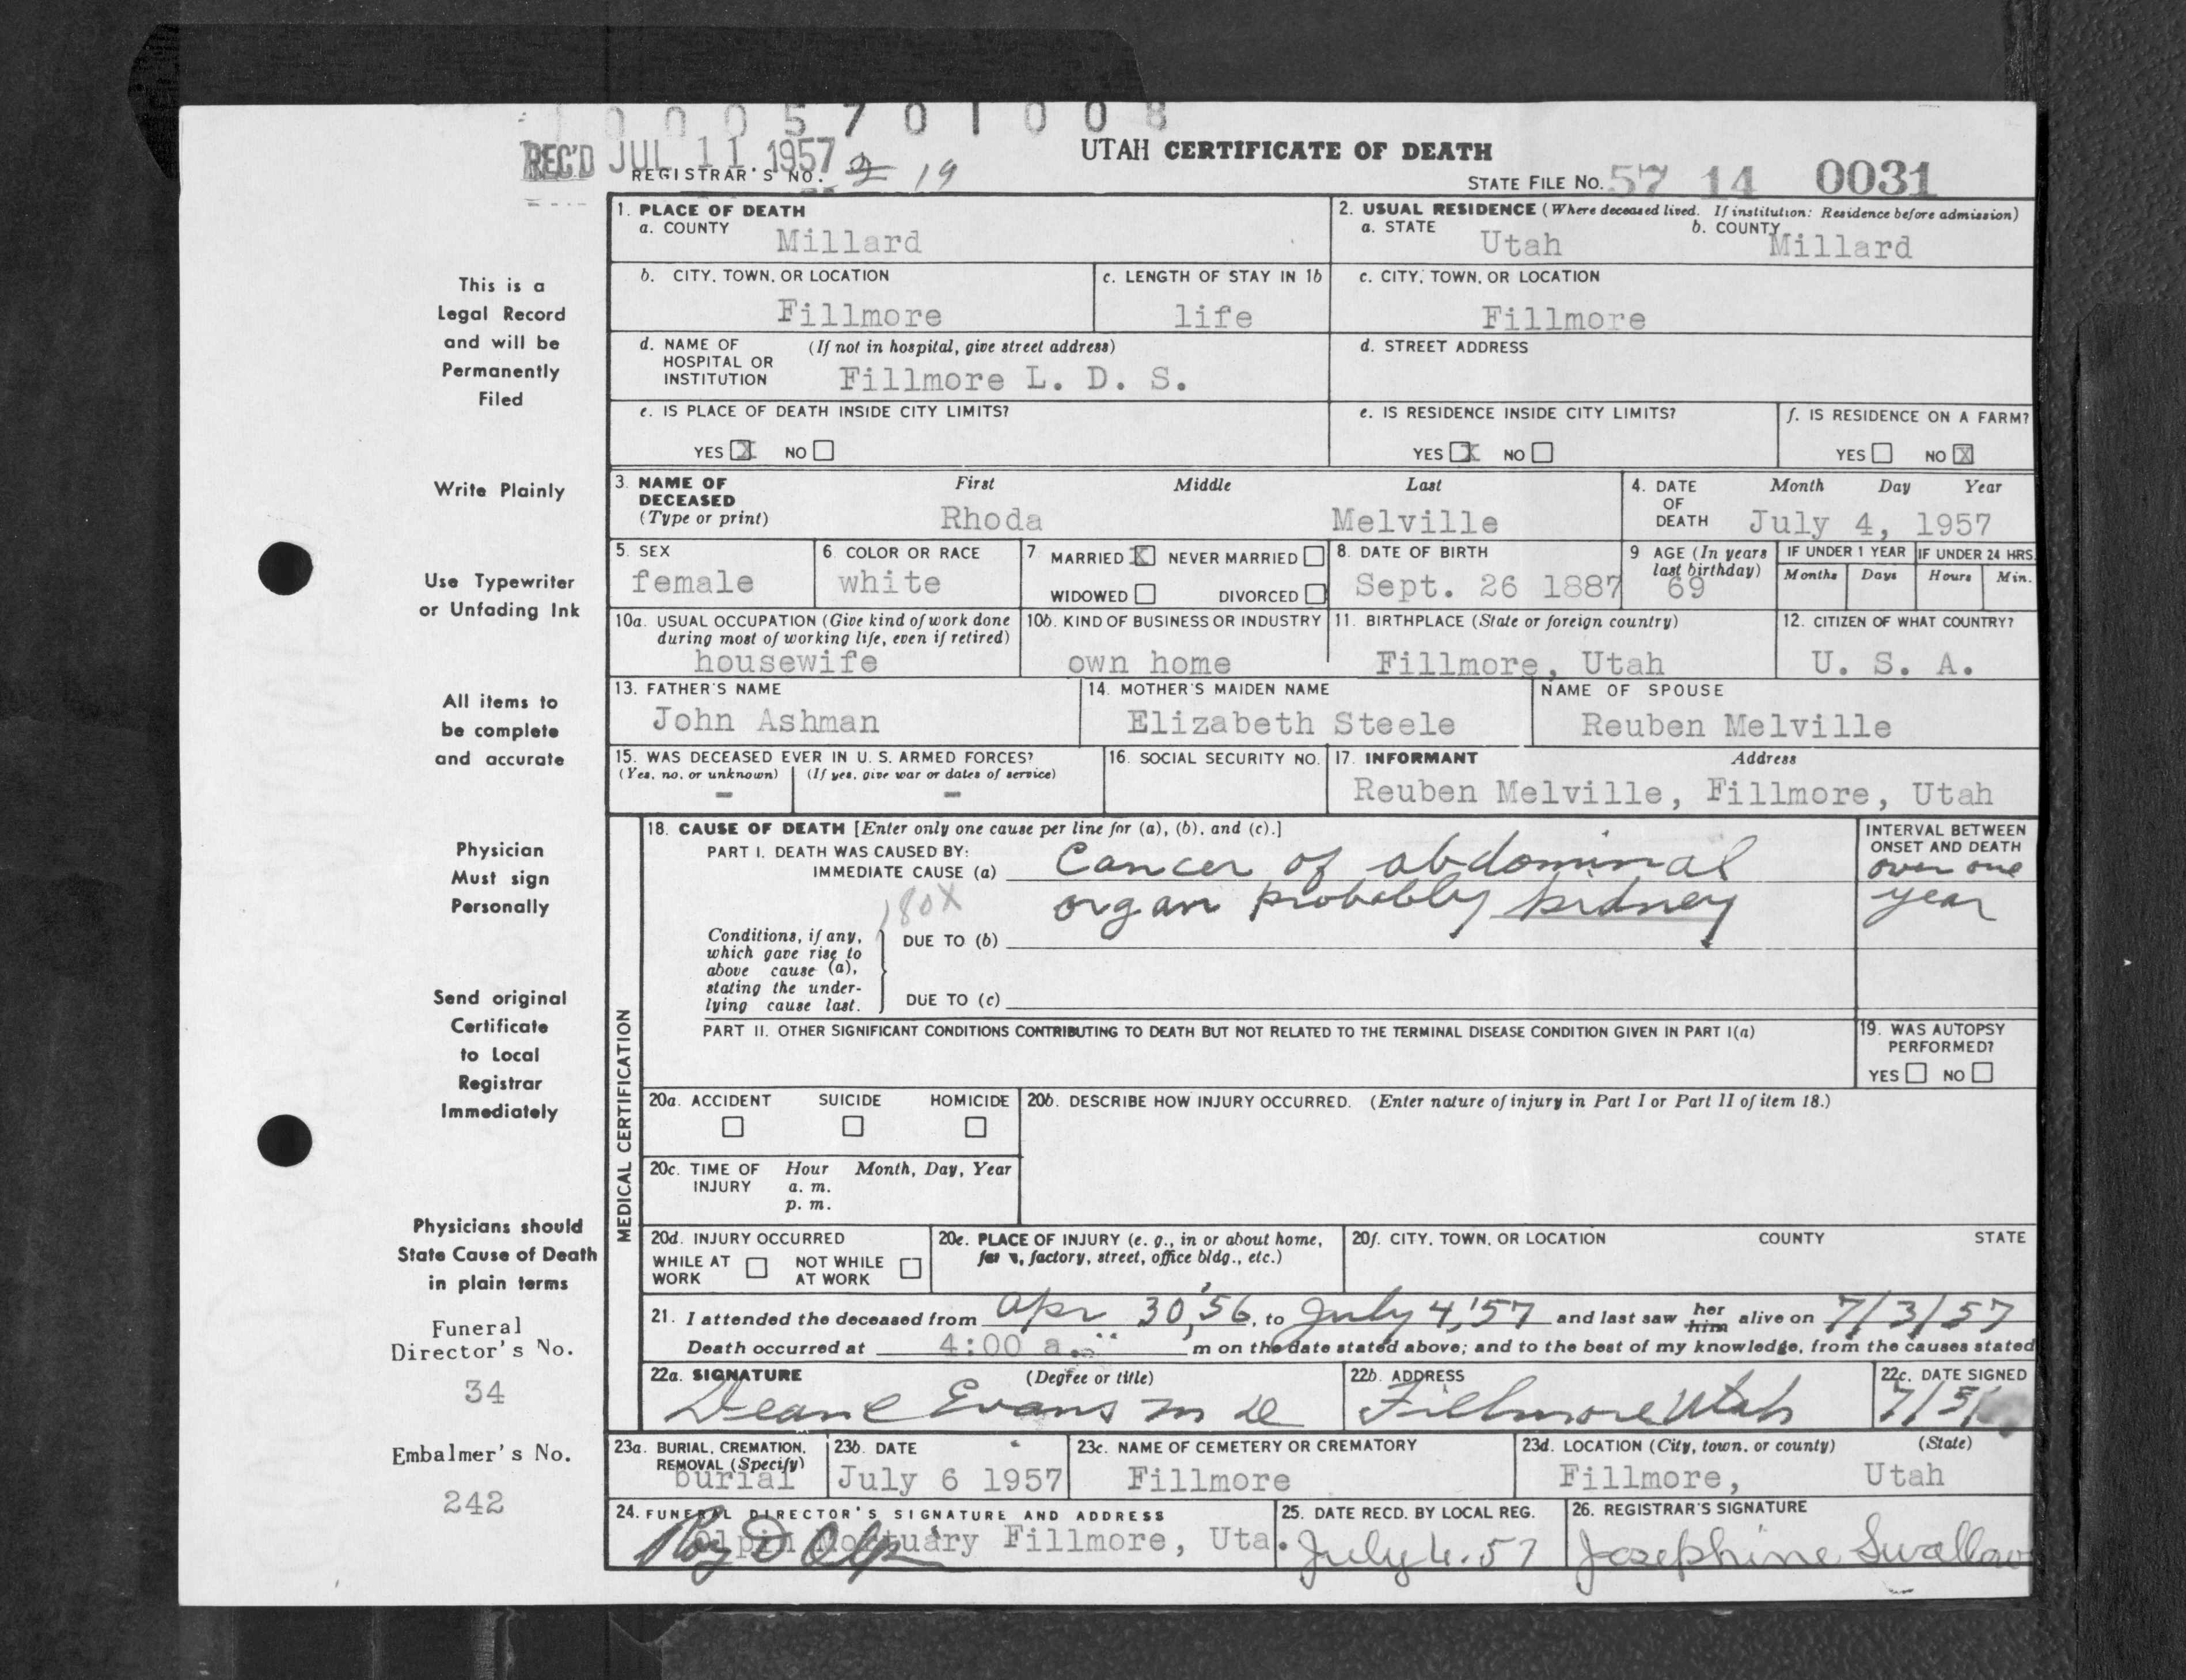 1 0 0 0 5 7 0 1 0 0 8
REC'D JUL 11 1957
REGISTRAR'S NO. 19
UTAH CERTIFICATE OF DEATH
STATE FILE NO. 57 14 0031
1. PLACE OF DEATH
a. COUNTY Millard
2. USUAL RESIDENCE (Where deceased lived. If institution: Residence before admission)
a. STATE Utah b. COUNTY Millard
b. CITY, TOWN, OR LOCATION Fillmore
c. LENGTH OF STAY IN 1b life
c. CITY, TOWN, OR LOCATION Fillmore
d. NAME OF (If not in hospital, give street address)
HOSPITAL OR
INSTITUTION Fillmore L. D. S.
d. STREET ADDRESS
e. IS PLACE OF DEATH INSIDE CITY LIMITS?
YES X NO
e. IS RESIDENCE INSIDE CITY LIMITS?
YES X NO
f. IS RESIDENCE ON A FARM?
YES NO X
3. NAME OF DECEASED (Type or print)
First Middle Last
Rhoda Melville
4. DATE OF DEATH Month Day Year
July 4, 1957
5. SEX female
6. COLOR OR RACE white
7. MARRIED X NEVER MARRIED
WIDOWED DIVORCED
8. DATE OF BIRTH Sept. 26 1887
9 AGE (In years last birthday) 69
IF UNDER 1 YEAR IF UNDER 24 HRS.
Months Days Hours Min.
10a. USUAL OCCUPATION (Give kind of work done
during most of working life, even if retired)
housewife
10b. KIND OF BUSINESS OR INDUSTRY
own home
11. BIRTHPLACE (State or foreign country)
Fillmore, Utah
12. CITIZEN OF WHAT COUNTRY?
U. S. A.
13. FATHER'S NAME
John Ashman
14. MOTHER'S MAIDEN NAME
Elizabeth Steele
NAME OF SPOUSE
Reuben Melville
15. WAS DECEASED EVER IN U. S. ARMED FORCES?
(Yes, no, or unknown) (If yes, give war or dates of service)
- -
16. SOCIAL SECURITY NO.
17. INFORMANT Address
Reuben Melville, Fillmore, Utah
MEDICAL CERTIFICATION
18. CAUSE OF DEATH [Enter only one cause per line for (a), (b), and (c).]
PART I. DEATH WAS CAUSED BY:
IMMEDIATE CAUSE (a) Cancer of abdominal
organ probably kidney
180X
INTERVAL BETWEEN
ONSET AND DEATH
over one
year
Conditions, if any,
which gave rise to
above cause (a),
stating the under-
lying cause last.
DUE TO (b)
DUE TO (c)
PART II. OTHER SIGNIFICANT CONDITIONS CONTRIBUTING TO DEATH BUT NOT RELATED TO THE TERMINAL DISEASE CONDITION GIVEN IN PART I(a)
19. WAS AUTOPSY
PERFORMED?
YES NO
20a. ACCIDENT SUICIDE HOMICIDE
20b. DESCRIBE HOW INJURY OCCURRED. (Enter nature of injury in Part I or Part II of item 18.)
20c. TIME OF Hour Month, Day, Year
INJURY a. m.
p. m.
20d. INJURY OCCURRED
WHILE AT NOT WHILE
WORK AT WORK
20e. PLACE OF INJURY (e. g., in or about home,
factory, street, office bldg., etc.)
20f. CITY, TOWN, OR LOCATION COUNTY STATE
21. I attended the deceased from Apr 30,'56, to July 4,'57 and last saw her him alive on 7/3/57
Death occurred at 4:00 a. m on the date stated above; and to the best of my knowledge, from the causes stated
22a. SIGNATURE (Degree or title)
Dean C Evans M D
22b. ADDRESS
Fillmore Utah
22c. DATE SIGNED
7/5/
23a. BURIAL, CREMATION,
REMOVAL (Specify)
burial
23b. DATE
July 6 1957
23c. NAME OF CEMETERY OR CREMATORY
Fillmore
23d. LOCATION (City, town, or county) (State)
Fillmore, Utah
24. FUNERAL DIRECTOR'S SIGNATURE AND ADDRESS
Olpin Mortuary Fillmore, Uta.
25. DATE RECD. BY LOCAL REG.
July 4.57
26. REGISTRAR'S SIGNATURE
Josephine Swallow
This is a
Legal Record
and will be
Permanently
Filed
Write Plainly
Use Typewriter
or Unfading Ink
All items to
be complete
and accurate
Physician
Must sign
Personally
Send original
Certificate
to Local
Registrar
Immediately
Physicians should
State Cause of Death
in plain terms
Funeral
Director's No.
34
Embalmer's No.
242